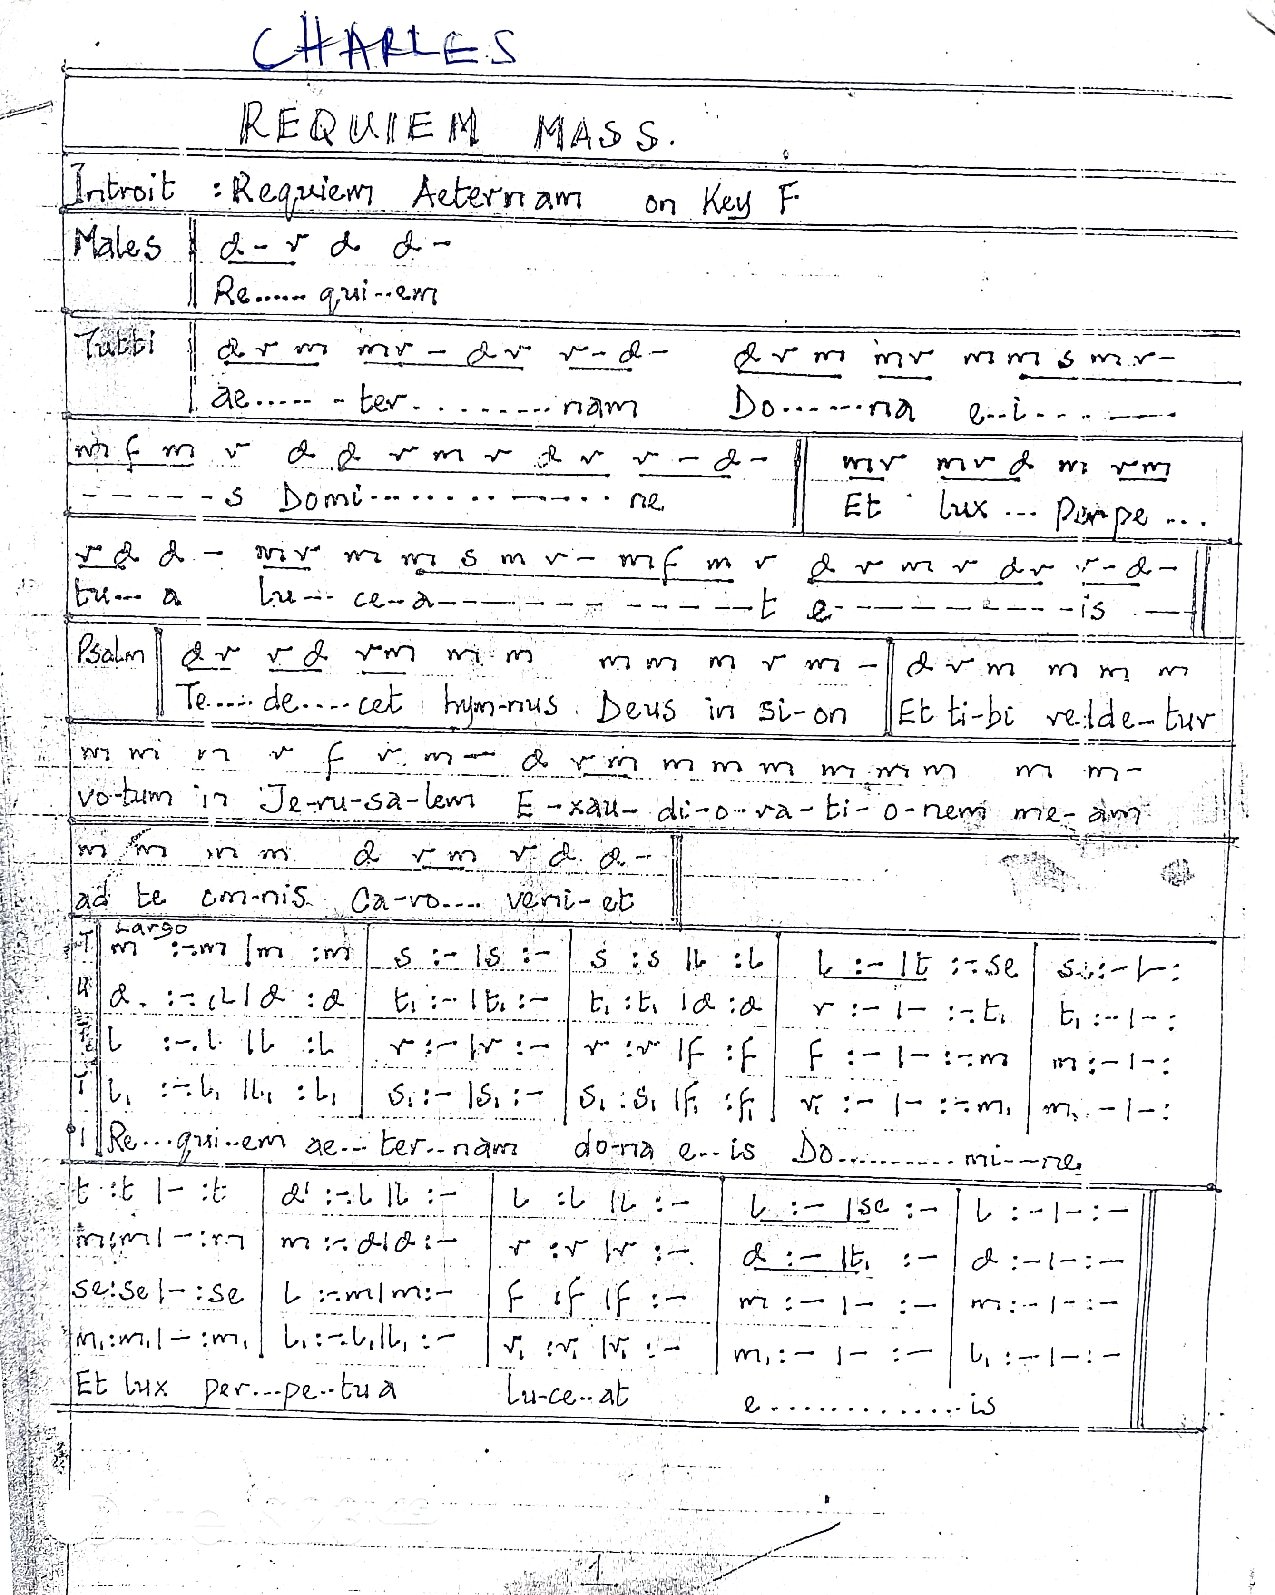 CHARLES
REQUIEM MASS.
Introit : Requiem Aeternam on Key F
Males d - r d d -
Re...... qui--em
Tutti d r m mr - dr r-d- d r m mr m m s m r-
ae...... - ter. ......... nam Do.......na e..i. . . . -----.
m f m r d d r m r d r r - d - mr mrd m rm
------s Domi............... ne Et lux ... Perpe ...
r d d - mr m m s m r - m f m r d r m r dr r-d-
tu... a lu--- ce--a---------------t e---------is ---
Psalm dr rd rm m m m m m r m - d r m m m m
Te.....de....cet hym-nus Deus in si-on Et ti-bi redde-tur
m m m r f r m - d rm m m m m m m m m-
vo-tum in Je-ru-sa-lem E-xau-di-o-ra-ti-o-nem me-am
m m m m d rm r d d-
ad te om-nis Ca-ro.... veni-et
Largo
T m :-.m |m :m s :- |s :- s :s |l :l l :- |t :-.se se :- |- :
U d. :-.l |d :d t₁ :- |t₁ :- t₁ :t₁ |d :d r :- |- :-.t₁ t₁ :- |- :
T l :-.l |l :l r :- |r :- r :r |f :f f :- |- :-.m m :- |- :
T l₁ :-.l₁ |l₁ :l₁ s₁ :- |s₁ :- s₁ :s₁ |f₁ :f₁ r₁ :- |- :-.m₁ m₁ - |- :
I Re....qui..em ae... ter..nam do-na e..is Do.......... mi--ne
t :t |- :t d' :-.l |l :- l :l |l :- l :- |se :- l :- |- :-
m:m |- :m m :-.d |d :- r :r |r :- d :- |t₁ :- d :- |- :-
se:se |- :se l :-.m |m :- f :f |f :- m :- |- :- m :- |- :-
m₁:m₁ |- :m₁ l₁ :-.l₁ |l₁ :- r₁ :r₁ |r₁ :- m₁ :- |- :- l₁ :- |- :-
Et lux per...pe..tua lu-ce..at e.............is
1